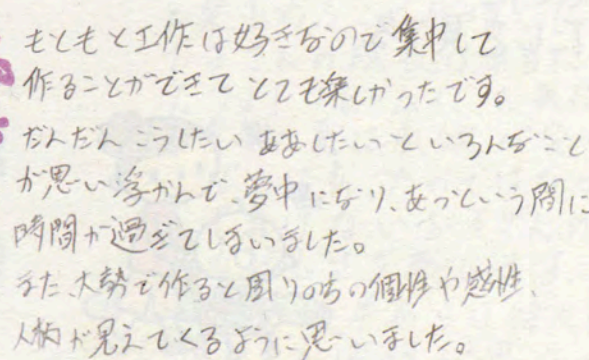 もともと工作は好きなので集中して
作ることができてとても楽しかったです。
だんだんこうしたいああしたいっといろんなこと
が思い浮かんで、夢中になり、あっという間に
時間が過ぎてしまいました。
また、大勢で作ると周りの方の個性や感性、
人柄が見えてくるように思いました。